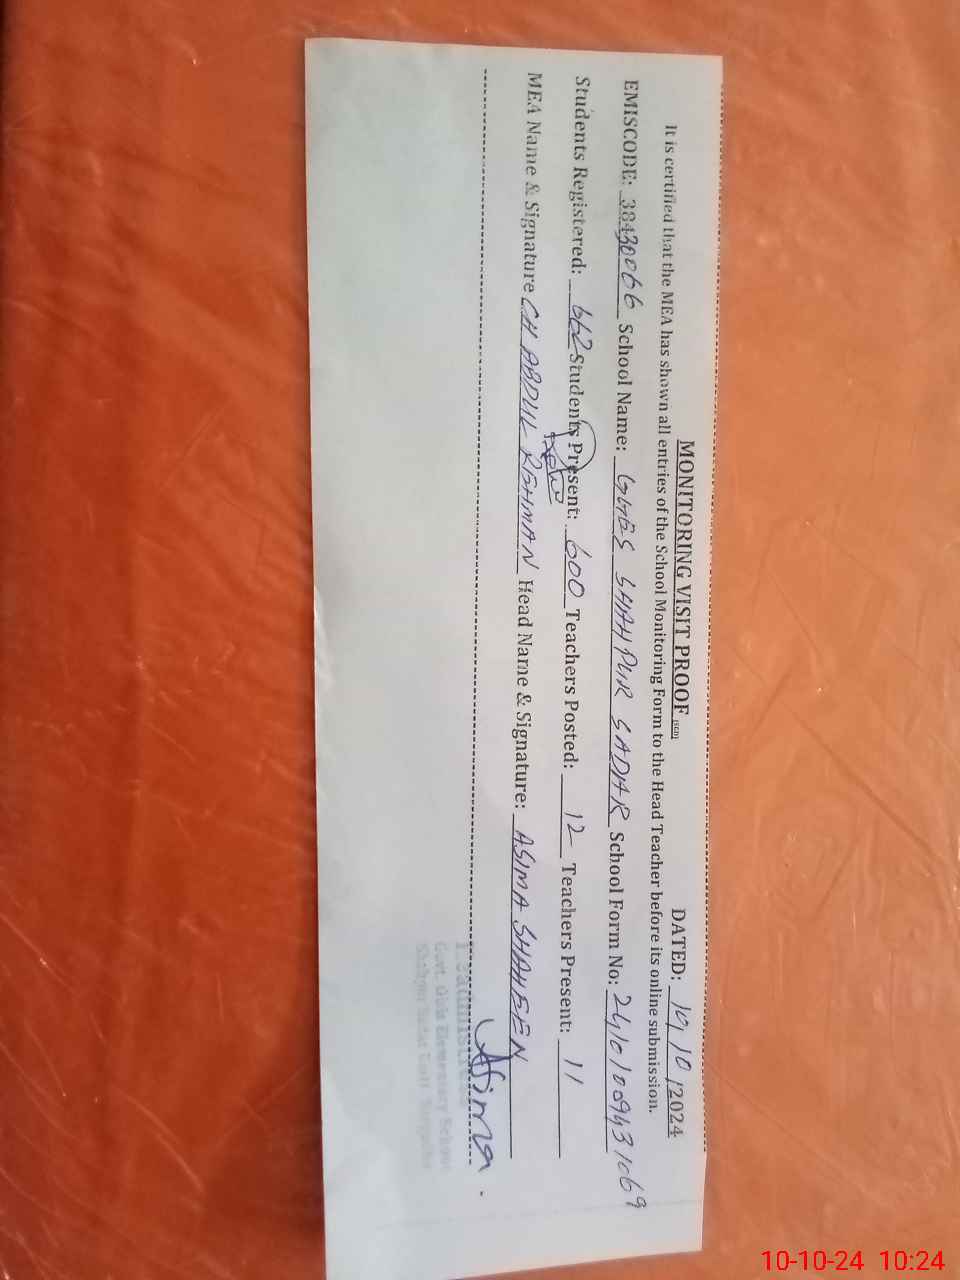 MONITORING VISIT PROOF (SED) DATED: 10/10/2024
It is certified that the MEA has shown all entries of the School Monitoring Form to the Head Teacher before its online submission.
EMISCODE: 38430066 School Name: GGES SHAH PUR SADAR School Form No:
Students Registered: 662 Students Present: 600 Teachers Posted: 12 Teachers Present: 11
MEA Name & Signature CH ABDUL REHMAN Head Name & Signature: ASIMA SHAHEEN
Asima
Govt. Girls Elementary School
10-10-24 10:24